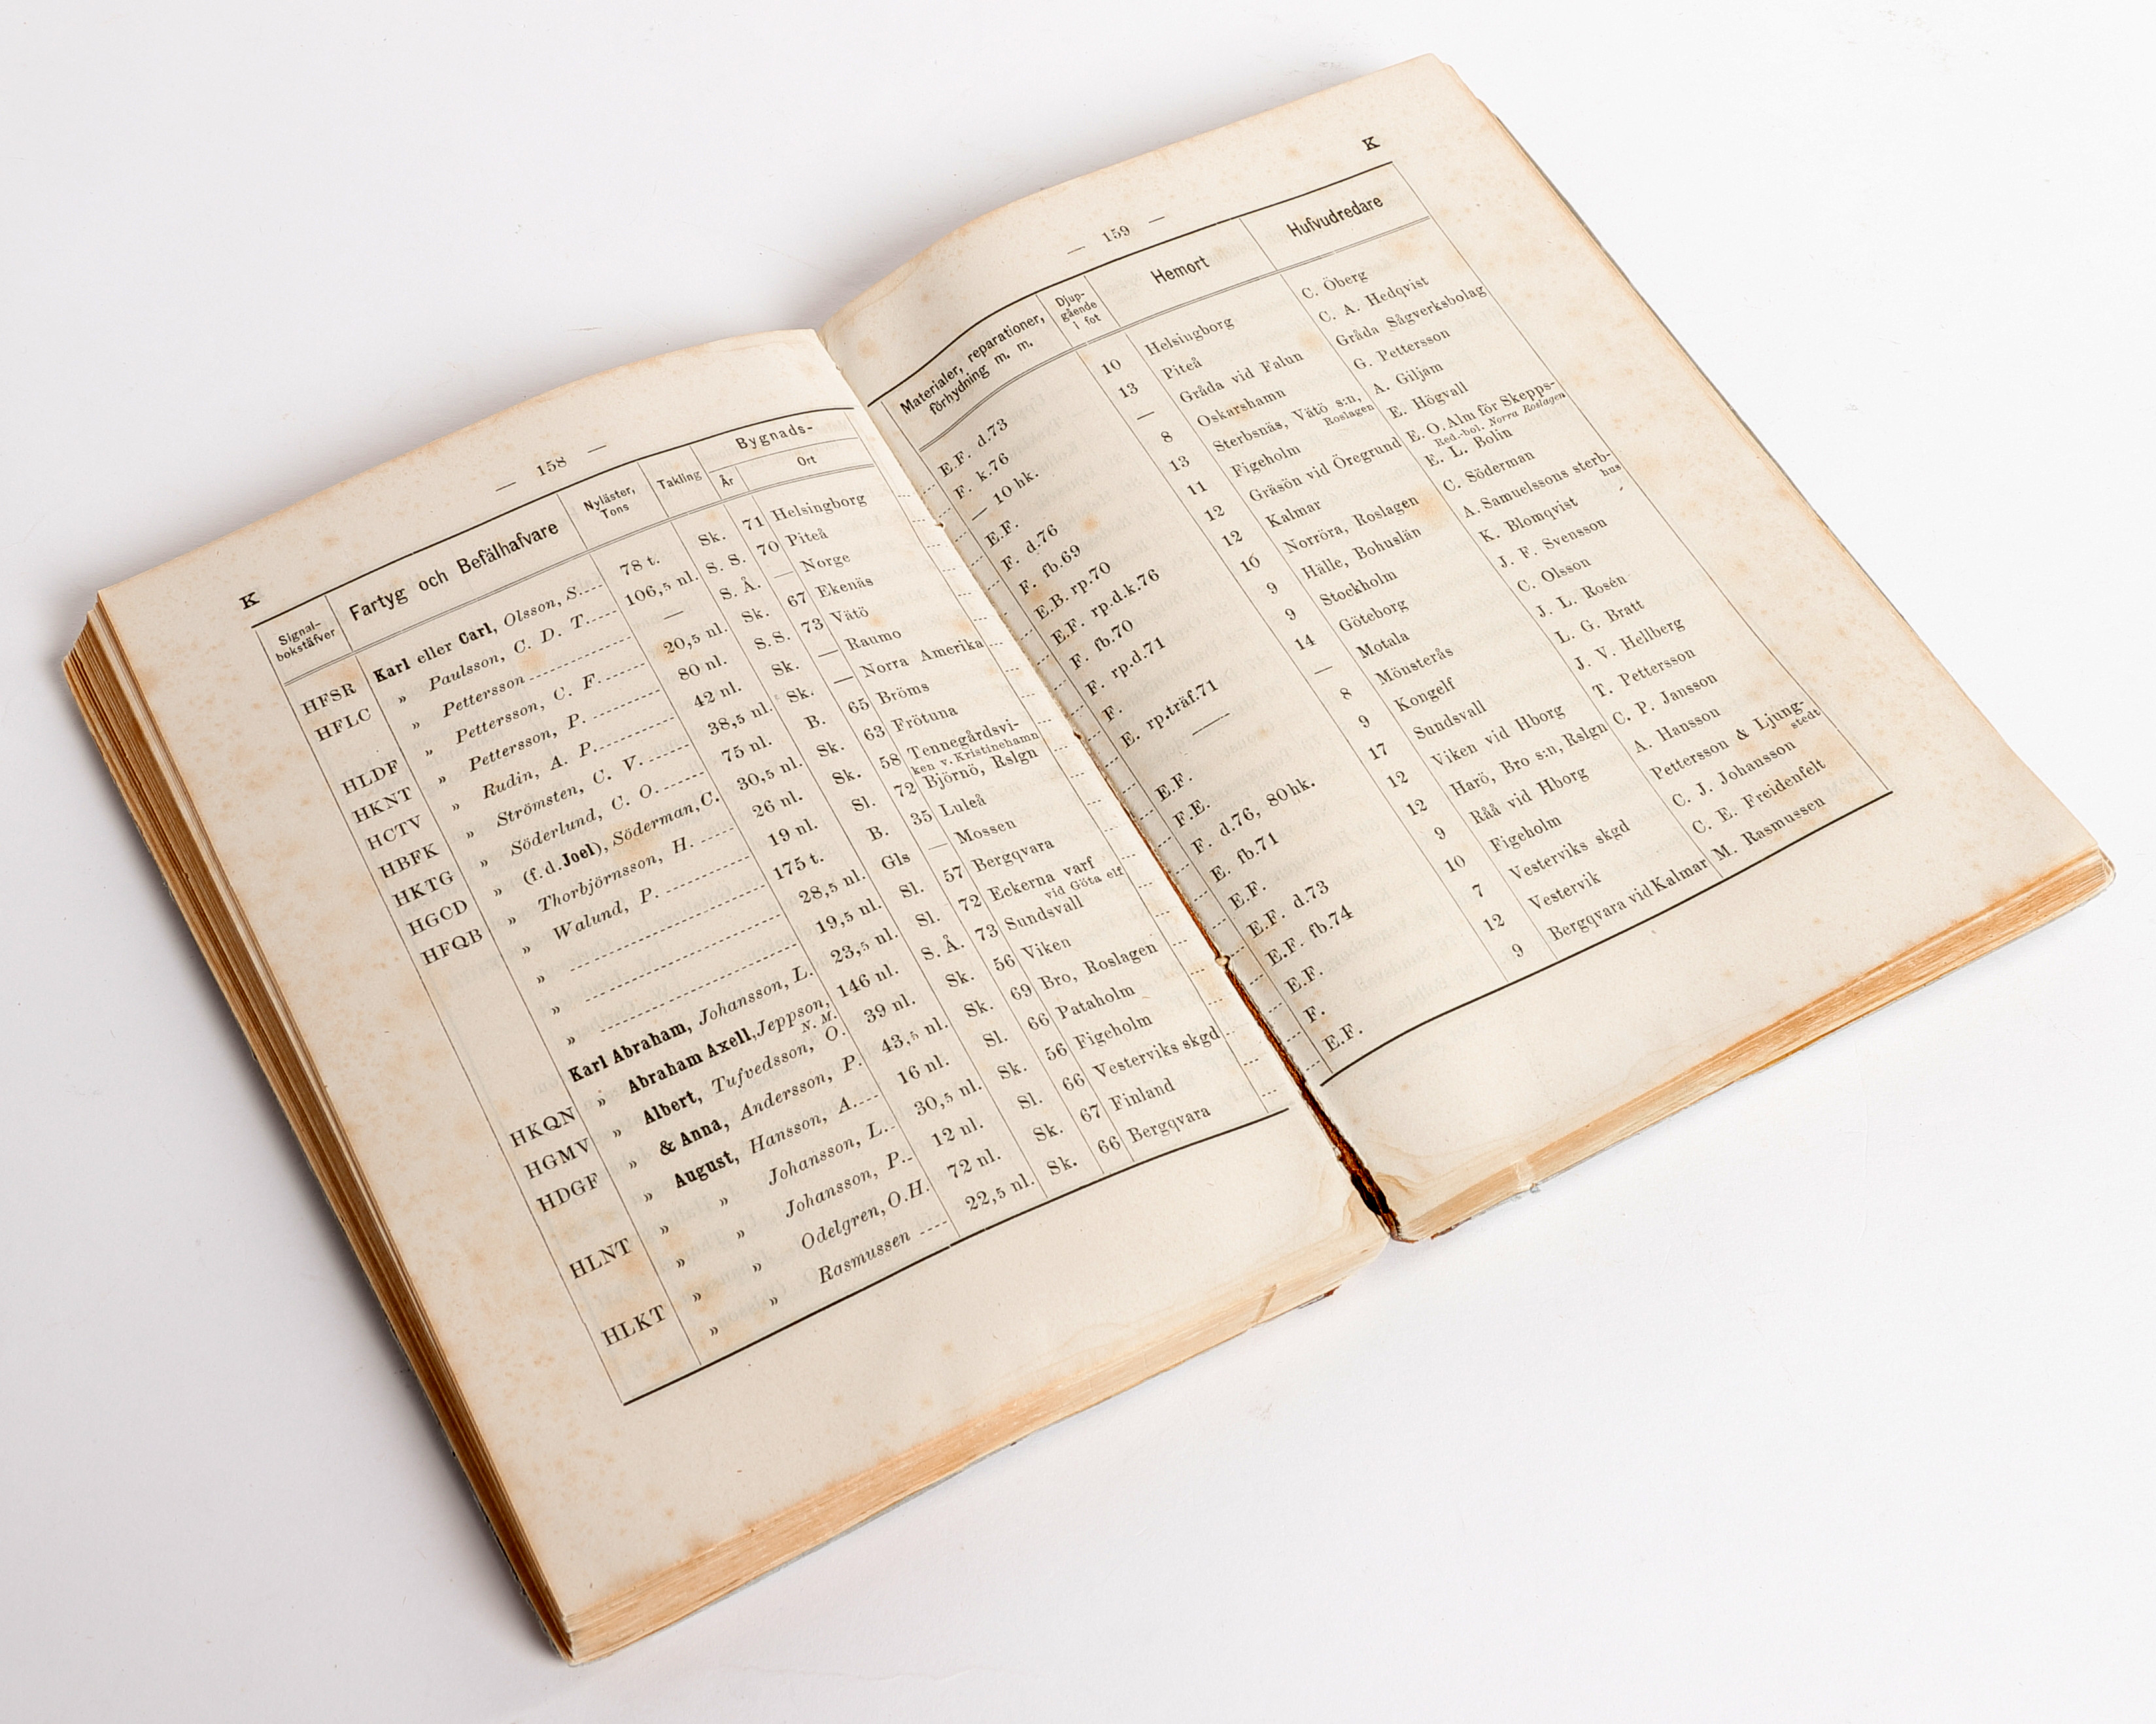 — 158 —
K
Signal-bokstäfver Fartyg och Befälhafvare Nyläster, Tons Takling Bygnads- År Ort
HFSR Karl eller Carl, Olsson, S. 78 t. Sk. 71 Helsingborg
HFLC » Paulsson, C. D. T. 106,5 nl. S. S. 70 Piteå
» Pettersson — S. Å. — Norge
HLDF » Pettersson, C. F. 20,5 nl. Sk. 67 Ekenäs
HKNT » Pettersson, P. 80 nl. S.S. 73 Vätö
HCTV » Rudin, A. P. 42 nl. Sk. — Raumo
HBFK » Strömsten, C. V. 38,5 nl. Sk. — Norra Amerika
HKTG » Söderlund, C. O. 75 nl. B. 65 Bröms
HGCD » (f.d. Joel), Söderman, C. 30,5 nl. Sk. 63 Frötuna
HFQB » Thorbjörnsson, H. 26 nl. Sk. 58 Tennegårdsvi-
ken v. Kristinehamn
» Walund, P. 19 nl. Sl. 72 Björnö, Rslgn
» 175 t. B. 35 Luleå
» 28,5 nl. Gls — Mossen
» 19,5 nl. Sl. 57 Bergqvara
Karl Abraham, Johansson, L. 23,5 nl. Sl. 72 Eckerna varf
vid Göta elf
HKQN » Abraham Axell, Jeppson, N. M. 146 nl. S. Å. 73 Sundsvall
HGMV » Albert, Tufvedsson, O. 39 nl. Sk. 56 Viken
HDGF » & Anna, Andersson, P. 43,5 nl. Sk. 69 Bro, Roslagen
» August, Hansson, A. 16 nl. Sl. 66 Pataholm
HLNT » » Johansson, L. 30,5 nl. Sk. 56 Figeholm
» » Johansson, P. 12 nl. Sl. 66 Vesterviks skgd
HLKT » » Odelgren, O.H. 72 nl. Sk. 67 Finland
» » Rasmussen 22,5 nl. Sk. 66 Bergqvara
— 159 —
K
Materialer, reparationer, förhydning m. m. Djup-gående i fot Hemort Hufvudredare
E.F. d.73 10 Helsingborg C. Öberg
F. k.76 13 Piteå C. A. Hedqvist
— 10 hk. — Gråda vid Falun Gråda Sågverksbolag
E.F. 8 Oskarshamn G. Pettersson
F. d.76 13 Sterbsnäs, Vätö s:n, Roslagen A. Giljam
F. fb.69 11 Figeholm E. Högvall
E.B. rp.70 12 Gräsön vid Öregrund E. O. Alm för Skepps-
Red.-bol. Norra Roslagen
E.F. rp.d.k.76 12 Kalmar E. L. Bolin
F. fb.70 10 Norröra, Roslagen C. Söderman
F. rp.d.71 9 Hälle, Bohuslän A. Samuelssons sterb-
hus
F. 9 Stockholm K. Blomqvist
E. rp.träf.71 14 Göteborg J. F. Svensson
— — Motala C. Olsson
E.F. 8 Mönsterås J. L. Rosén
F.E. 9 Kongelf L. G. Bratt
F. d.76, 80hk. 17 Sundsvall J. V. Hellberg
E. fb.71 12 Viken vid Hborg T. Pettersson
E.F. 12 Harö, Bro s:n, Rslgn C. P. Jansson
E.F. d.73 9 Råå vid Hborg A. Hansson
E.F. fb.74 10 Figeholm Pettersson & Ljung-
stedt
E.F. 7 Vesterviks skgd C. J. Johansson
F. 12 Vestervik C. E. Freidenfelt
E.F. 9 Bergqvara vid Kalmar M. Rasmussen